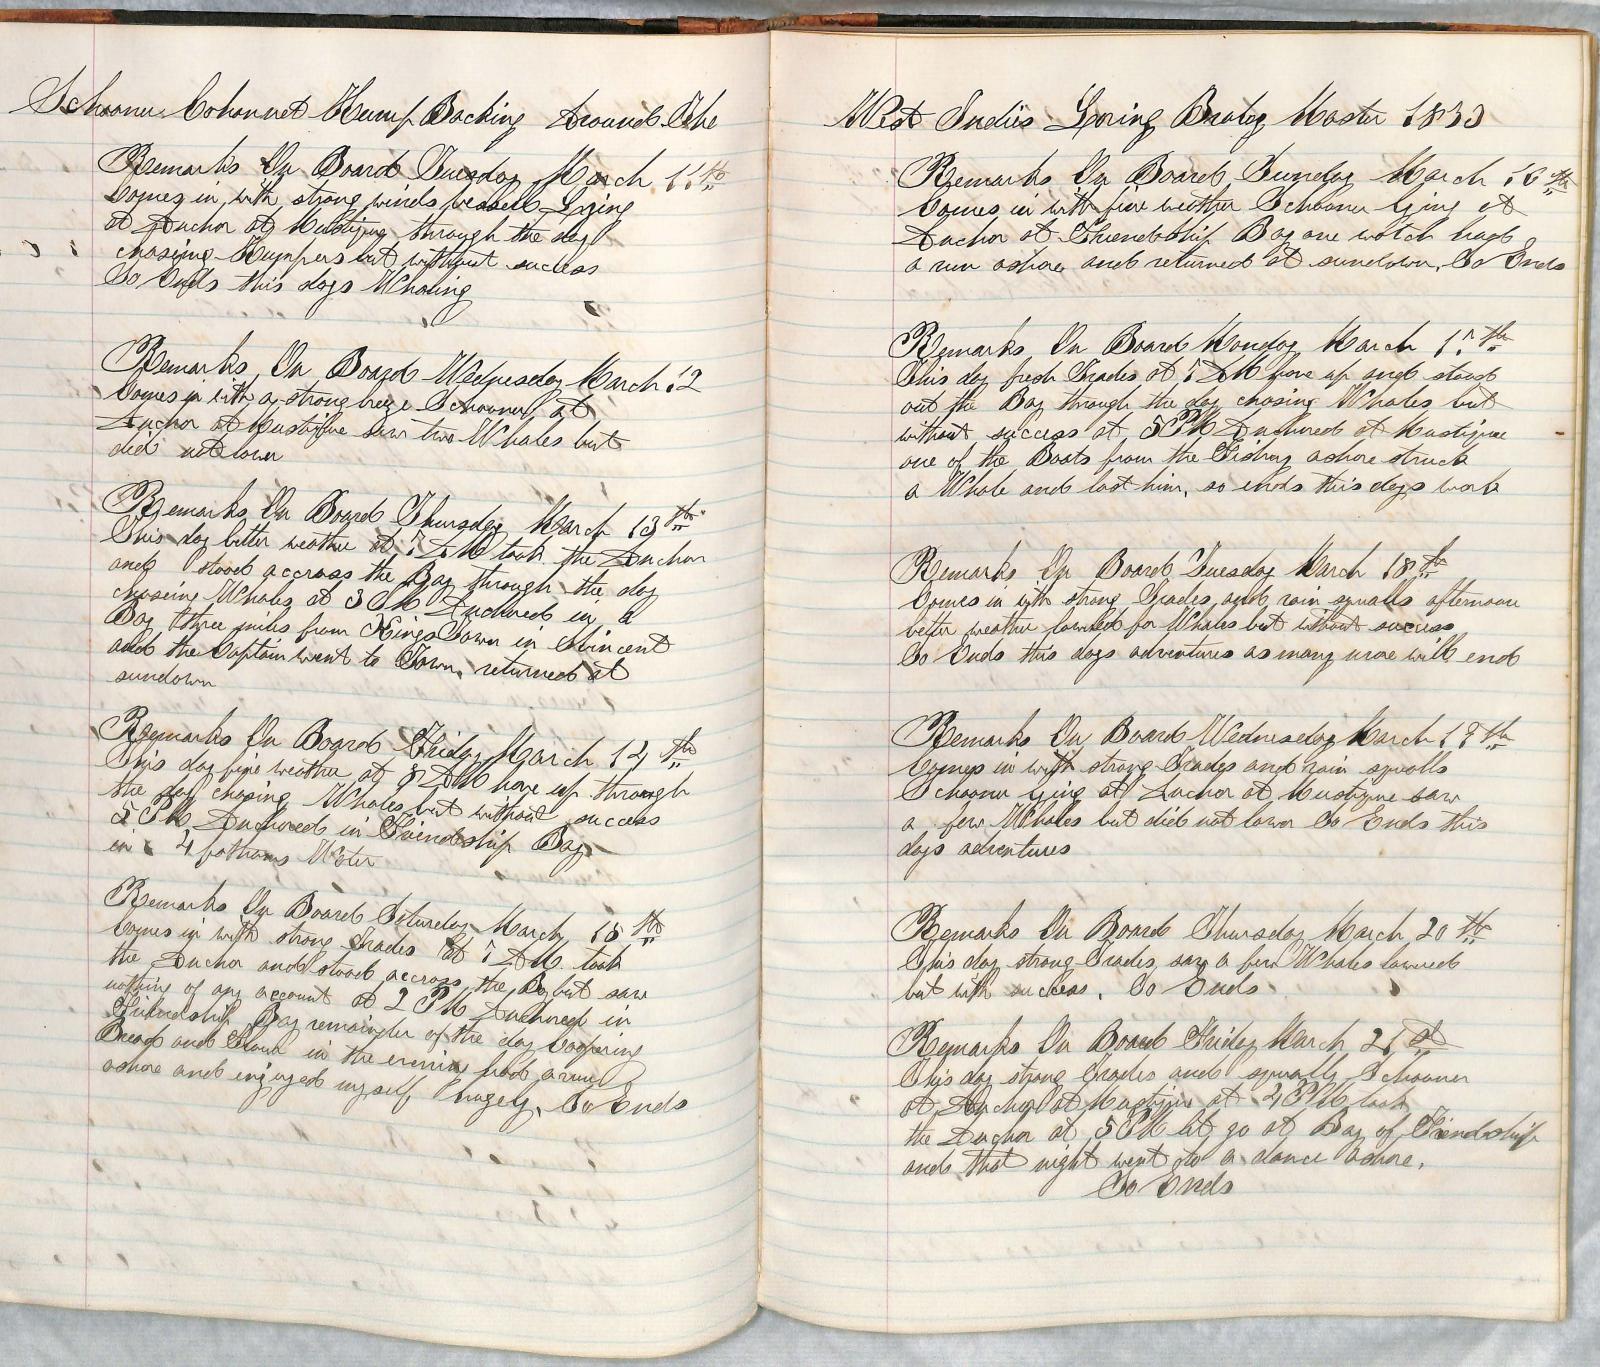 Schooner Cohannet Hump Backing Around The
Remarks On Board Tuesday March 11th
Comes in with strong winds vessell Lying
at Anchor at Mustique through the day
chasing Humpers but without success
So Ends this days Whaling
Remarks On Board Wednesday March 12
Comes in with a strong breeze Schooner at
Anchor at Mustique saw two Whales but
did not lower
Remarks On Board Thursday March 13th
This day better weather at 7 AM took the Anchor
and stood accross the Bay through the day
chaseing Whales at 3 PM Anchored in a
Bay three miles from Kings Town in St Vincent
and the Captain went to Town, returned at
sundown
Remarks On Board Friday March 14th
This day fine weather at 8 AM hove up through
the day chasing Whales but without success
5 PM Anchored in Friendship Bay
in 4 fathoms Water
Remarks On Board Saturday March 15th
Comes in with strong Trades at 7 AM took
the Anchor and stood accross the Bay but saw
nothing of any account at 2 PM Anchored in
Friendship Bay remainder of the day Coopering
Bread and Flour in the evening had a run
ashore and enjoyed myself hugely. So Ends
West Indies Loring Braley Master 18
Remarks On Board Sunday March 16th
Comes in with fine weather Schooner lying at
Anchor at Friendship Bay one watch had
a run ashore and returned at sundown. So Ends
Remarks On Board Monday March 17th
This day fresh Trades at 7 AM hove up and stood
out the Bay through the day chasing Whales but
without success at 5 PM Anchored at Mustique
one of the Boats from the Fishery ashore struck
a Whale and lost him, so ends this days work
Remarks On Board Tuesday March 18th
Comes in with strong Trades and rain squalls afternoon
better weather lowered for Whales but without success
So Ends this days adventures as many more will end
Remarks On Board Wednesday March 19th
Comes in with strong Trades and rain squalls
Schooner lying at Anchor at Mustique saw
a few Whales but did not lower So Ends this
days adventures
Remarks On Board Thursday March 20th
This day strong Trades, saw a few Whales lowered
but with success. So Ends
Remarks On Board Friday March 21st
This day strong Trades and squally Schooner
at Anchor at Mustique at 4 PM took
the Anchor at 5 PM let go at Bay of Friendship
and that night went to a dance ashore.
So Ends